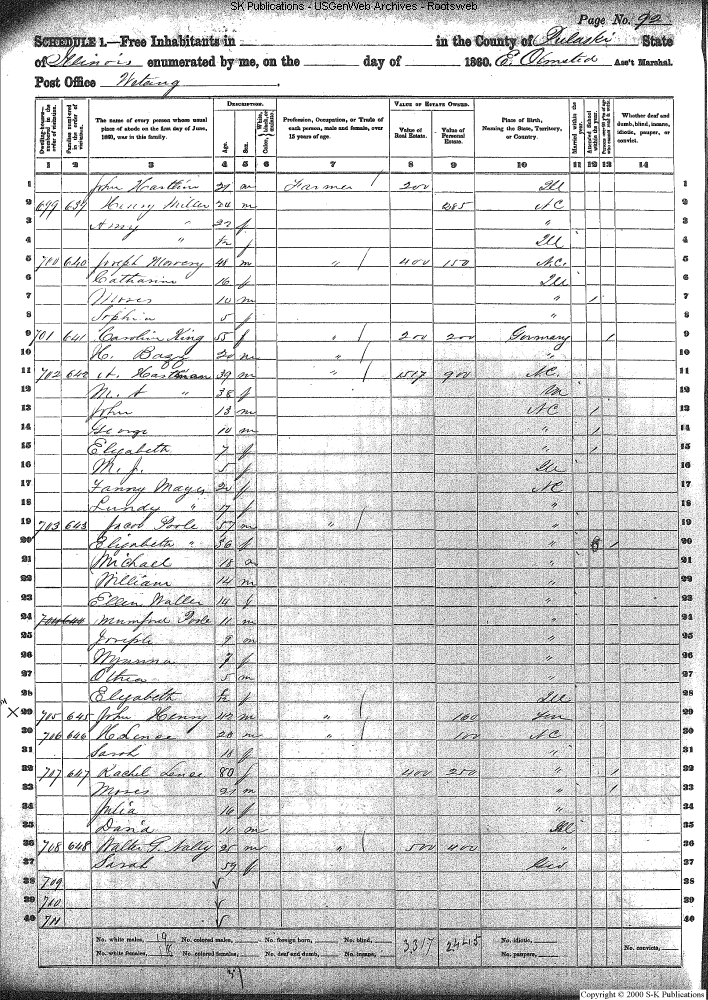 SK Publications - USGenWeb Archives - Rootsweb
Page No. 92
SCHEDULE 1.—Free Inhabitants in in the County of Pulaski State
of Illinois enumerated by me, on the day of 1860. E. Olmsted Ass't Marshal.
Post Office Wetaug
Dwelling-houses—numbered in the order of visitation.
Families numbered in the order of visitation.
The name of every person whose usual place of abode on the first day of June, 1860, was in this family.
DESCRIPTION.
Age.
Sex.
Color, White, black, or mulatto.
Profession, Occupation, or Trade of each person, male and female, over 15 years of age.
VALUE OF ESTATE OWNED.
Value of Real Estate.
Value of Personal Estate.
Place of Birth, Naming the State, Territory, or Country.
Married within the year.
Attended School within the year.
Whether deaf and dumb, blind, insane, idiotic, pauper, or convict.
1 2 3 4 5 6 7 8 9 10 11 12 13 14
1 John m Farmer / 200 Ill 1
2 699 639 Henry Miller 24 m NC 2
3 Amy " f " 3
4 " f Ill 4
5 700 640 Joseph Mowery 48 m " / 400 150 N.C. 5
6 Catharine 16 f Ill 6
7 Moses 10 m " / 7
8 Sophia 5 f " 8
9 701 641 Caroline King 55 f " / 200 200 Germany / 9
10 H. 20 m " / " 10
11 702 642 Hartman 39 m " / 1517 900 N.C. 11
12 " 38 f 12
13 John 13 m NC / 13
14 George 10 m " / 14
15 Elizabeth 7 f " / 15
16 M. 5 f Ill 16
17 Fanny Mayes f NC 17
18 Lundy " 17 f " 18
19 703 643 Jacob Poole 57 m " / " 19
20 Elizabeth " 36 f " / 20
21 Michael 18 m " 21
22 William 14 m " 22
23 Ellen Waller 14 f " 23
24 704 644 Mumford Poole 11 m " 24
25 Joseph 9 m " 25
26 7 f " 26
27 5 m " 27
28 Elizabeth f Ill 28
X 29 705 645 John Henry 42 m " / 100 Ten 29
30 706 646 H Lence m " / 100 NC 30
31 Sarah f " 31
32 707 647 Rachel Lence 80 f 400 250 " / 32
33 Moses 21 m " / 33
34 Julia 16 f " 34
35 David 11 m Ill 35
36 708 648 Walter G. m " / 500 400 " 36
37 Sarah 59 f Geo 37
38 709 38
39 710 39
40 711 40
No. white males, 19 No. colored males, No. foreign born, No. blind, 3317 No. idiotic, No. convicts,
No. white females, 18 No. colored females, No. deaf and dumb, No. insane, No. paupers,
Copyright © 2000 S-K Publications